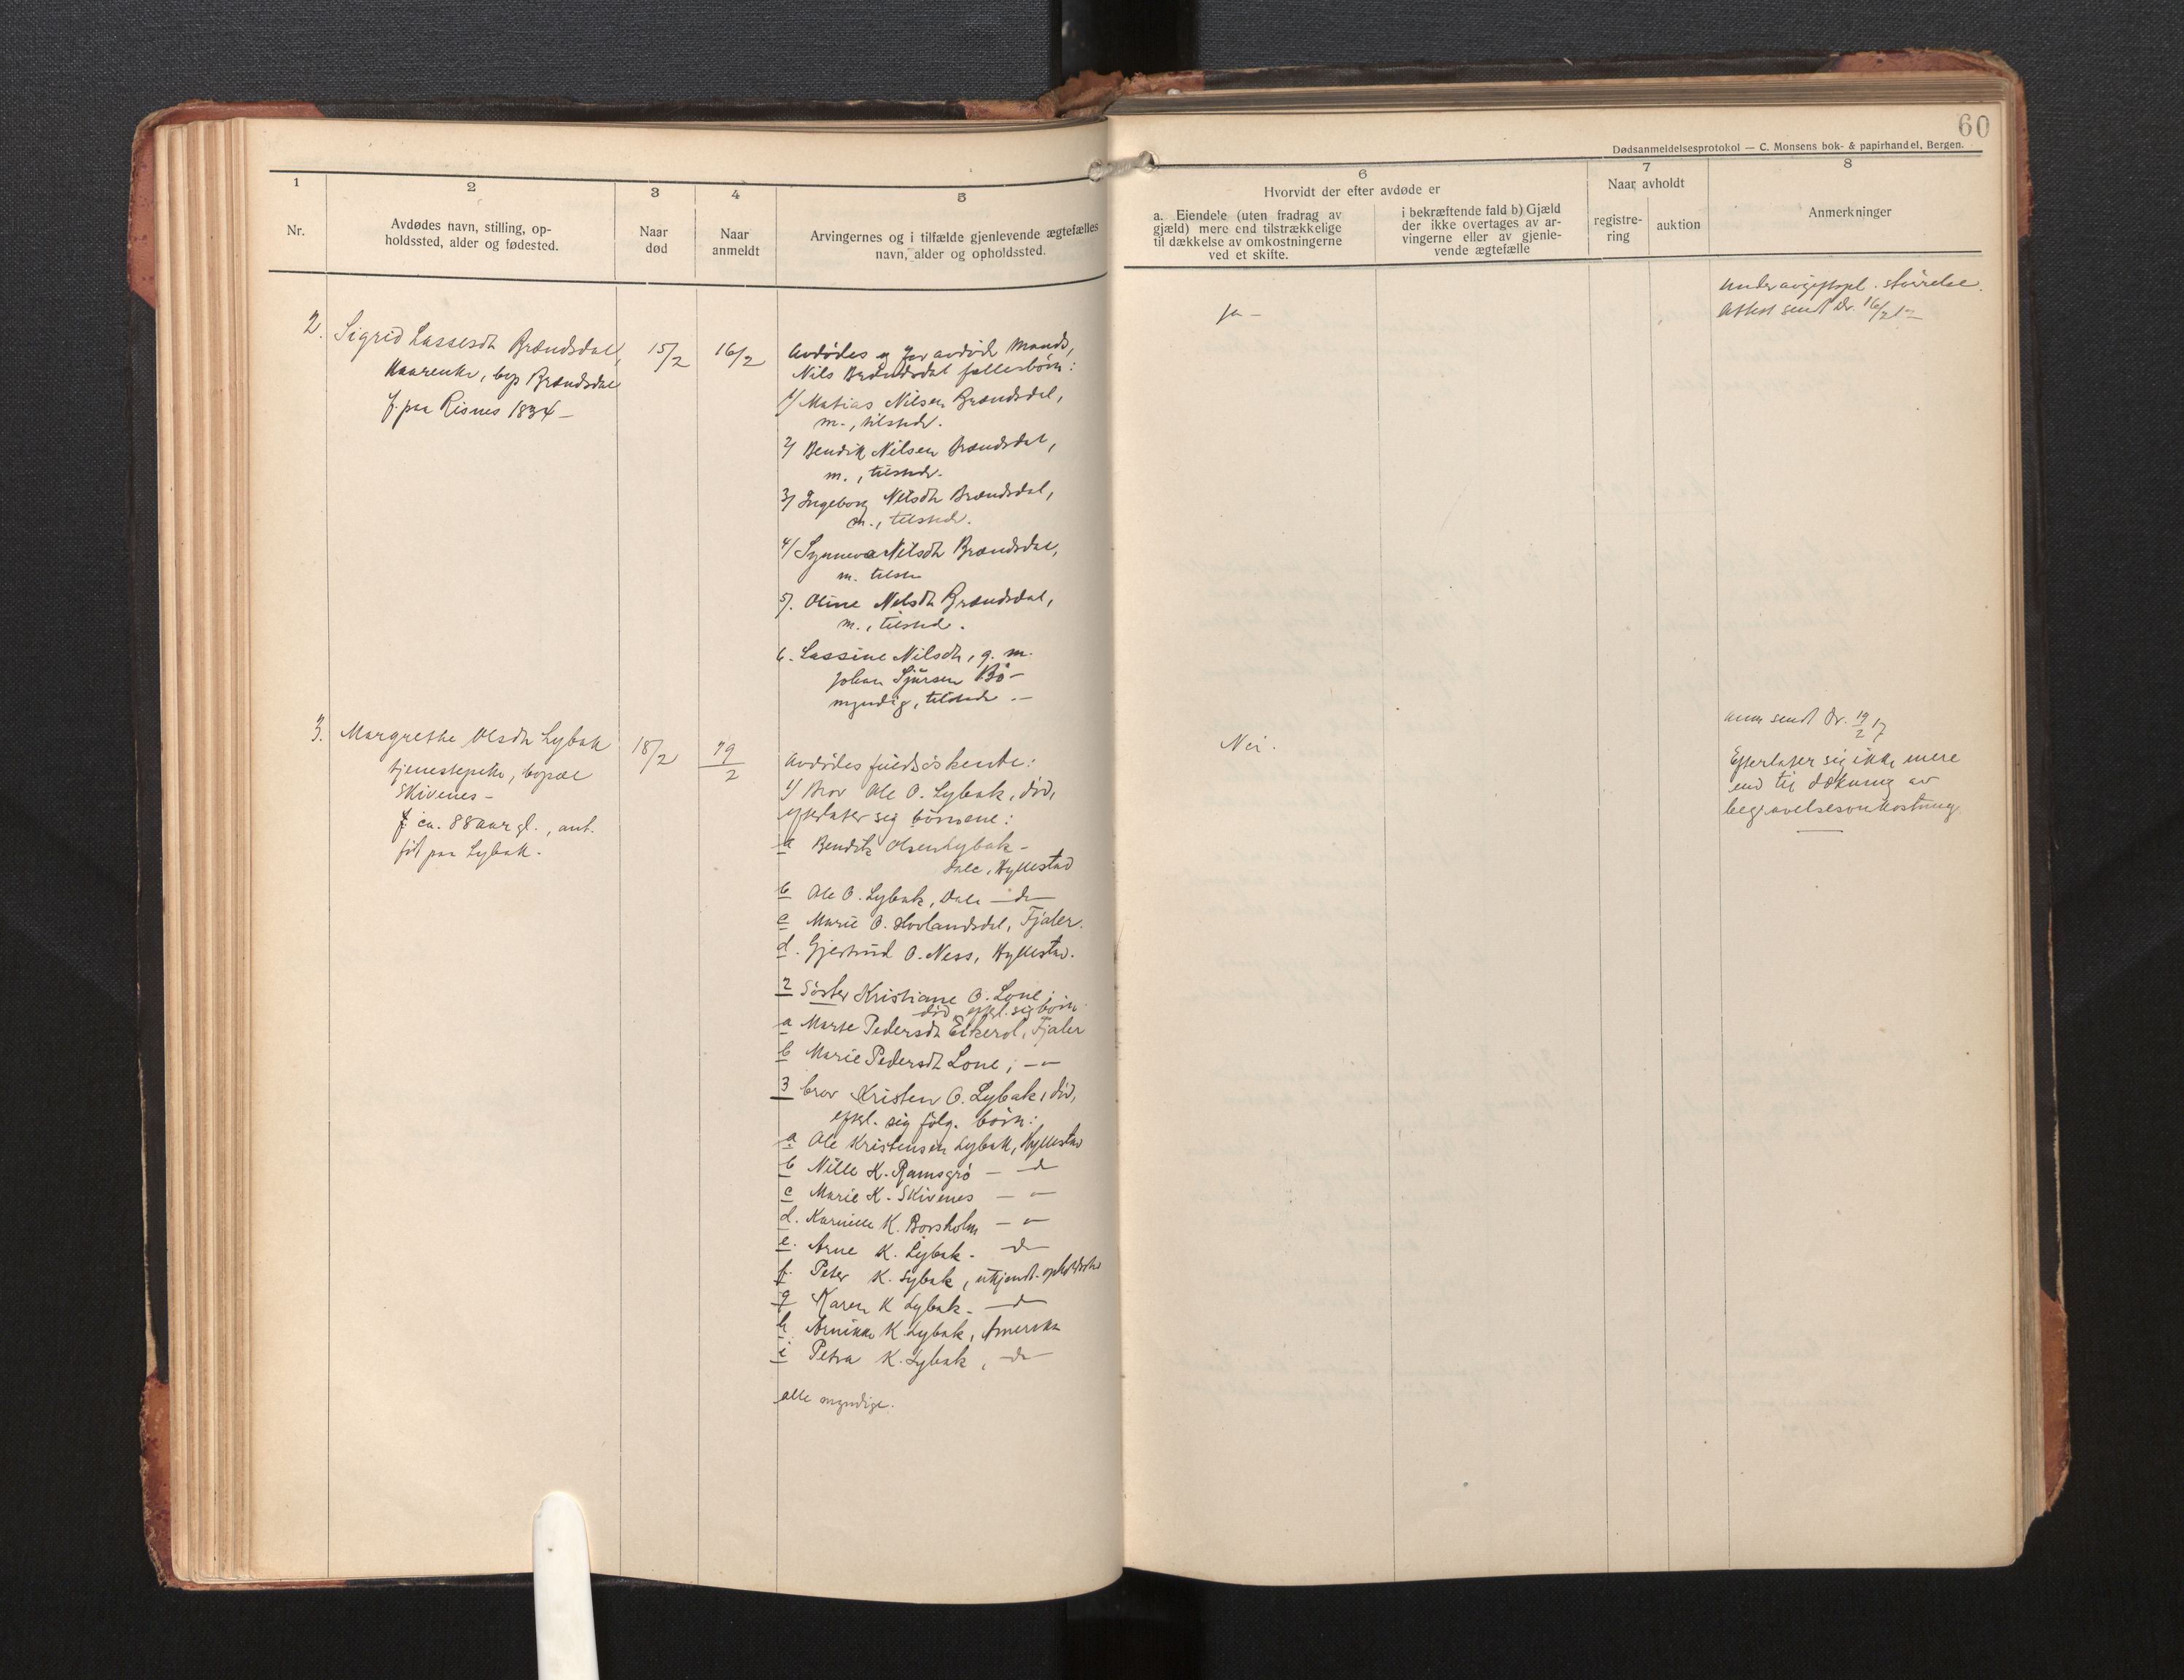 60
Dødsanmeldelsesprotokol — C. Monsens bok- & papirhandel, Bergen.
1
Nr.
2
Avdødes navn, stilling, op-
holdssted, alder og fødested.
3
Naar
død
4
Naar
anmeldt
5
Arvingernes og i tilfælde gjenlevende ægtefælles
navn, alder og opholdssted.
6
Hvorvidt der efter avdøde er
a. Eiendele (uten fradrag av
gjæld) mere end tilstrækkelige
til dækkelse av omkostningerne
ved et skifte.
i bekræftende fald b) Gjæld
der ikke overtages av ar-
vingerne eller av gjenle-
vende ægtefælle
7
Naar avholdt
registre-
ring
auktion
8
Anmerkninger
2.
Sigrid Lassesdt Brændsdal,
Kaarenke, bop Brændsdal
f. paa Risnes 1834 —
15/2
16/2
Avdødes og før avdøde mands,
Nils Brændsdal fællesbørn:
1/ Matias Nilsen Brændsdal,
m., tilstede.
2/ Bendik Nilsen Brændsdal,
m., tilstede.
3/ Ingeborg Nilsdt Brændsdal,
m., tilstede.
4/ Synneva Nilsdt Brændsdal,
m. tilste
5/. Oline Nilsdt Brændsdal,
m., tilsted.
6. Lassine Nilsdt, g. m.
Johan Sjursen Bø —
myndig, tilstede —
ja —
under avgiftspl. størrelse.
Attest sendt Dr. 16/2 17
3.
Margrethe Olsdt Lybak
tjenestepike, bopæl
Skivenes —
f ca. 88 aar gl., ant.
født paa Lybak.
18/2
19/2
Avdødes fuldsøskende:
1/ Bror Ole O. Lybak, død,
efterlater sig børnene:
a Bendik Olsen Lybak —
Dale, Hyllestad
b Ole O. Lybak, Dale — do —
c Marie O. Hovlandsdal, Fjaler.
d. Gjertrud O. Ness, Hyllestad.
2 Søster Kristiane O. Lone;
død efterl. sig børn
a Marte Pedersdt Eikerol, Fjaler
b Marie Pedersdt Lone; — " —
3 bror Kristen O. Lybak, død,
efterl. sig følg. børn:
a Ole Kristensen Lybak, Hyllestad
b Nille K. Ramsgrø — do
c Marie K. Skivenes — " —
d. Karnille K. Borsholm — " —
e. Arne K. Lybak. — do —
f. Peter K. Lybak, ukjendt opholdssted
g Karen K Lybak. — do —
h. Arnikka K. Lybak, Amerika
i Petra K. Lybak, — do —
alle myndige.
Nei.
anm sendt Dr. 19/2 17
Efterlater sig ikke mere
end til dækning av
begravelsesomkostning